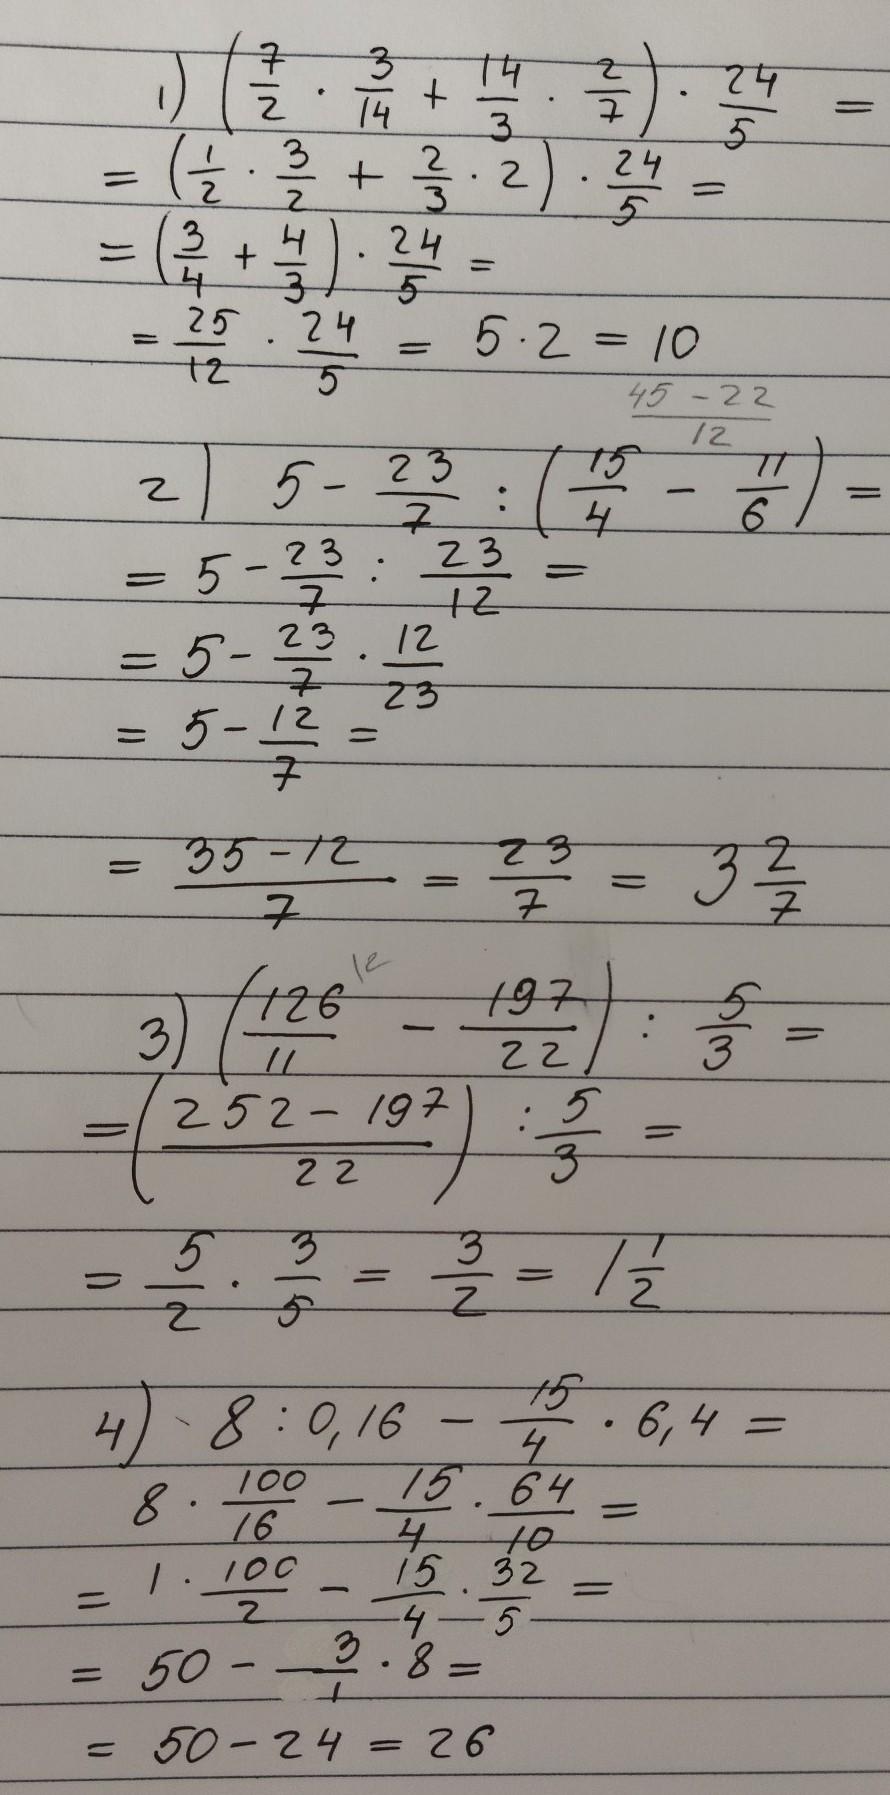 1) (7/2 · 3/14 + 14/3 · 2/7) · 24/5 =
= (1/2 · 3/2 + 2/3 · 2) · 24/5 =
= (3/4 + 4/3) · 24/5 =
= 25/12 · 24/5 = 5 · 2 = 10
45 - 22/12
2) 5 - 23/7 : (15/4 - 11/6) =
= 5 - 23/7 : 23/12 =
= 5 - 23/7 · 12/23
= 5 - 12/7 =
= 35 - 12/7 = 23/7 = 3 2/7
12
3) (126/11 - 197/22) : 5/3 =
= (252 - 197/22) : 5/3 =
= 5/2 · 3/5 = 3/2 = 1 1/2
4) 8 : 0,16 - 15/4 · 6,4 =
8 · 100/16 - 15/4 · 64/10 =
= 1 · 100/2 - 15/4 · 32/5 =
= 50 - 3/1 · 8 =
= 50 - 24 = 26